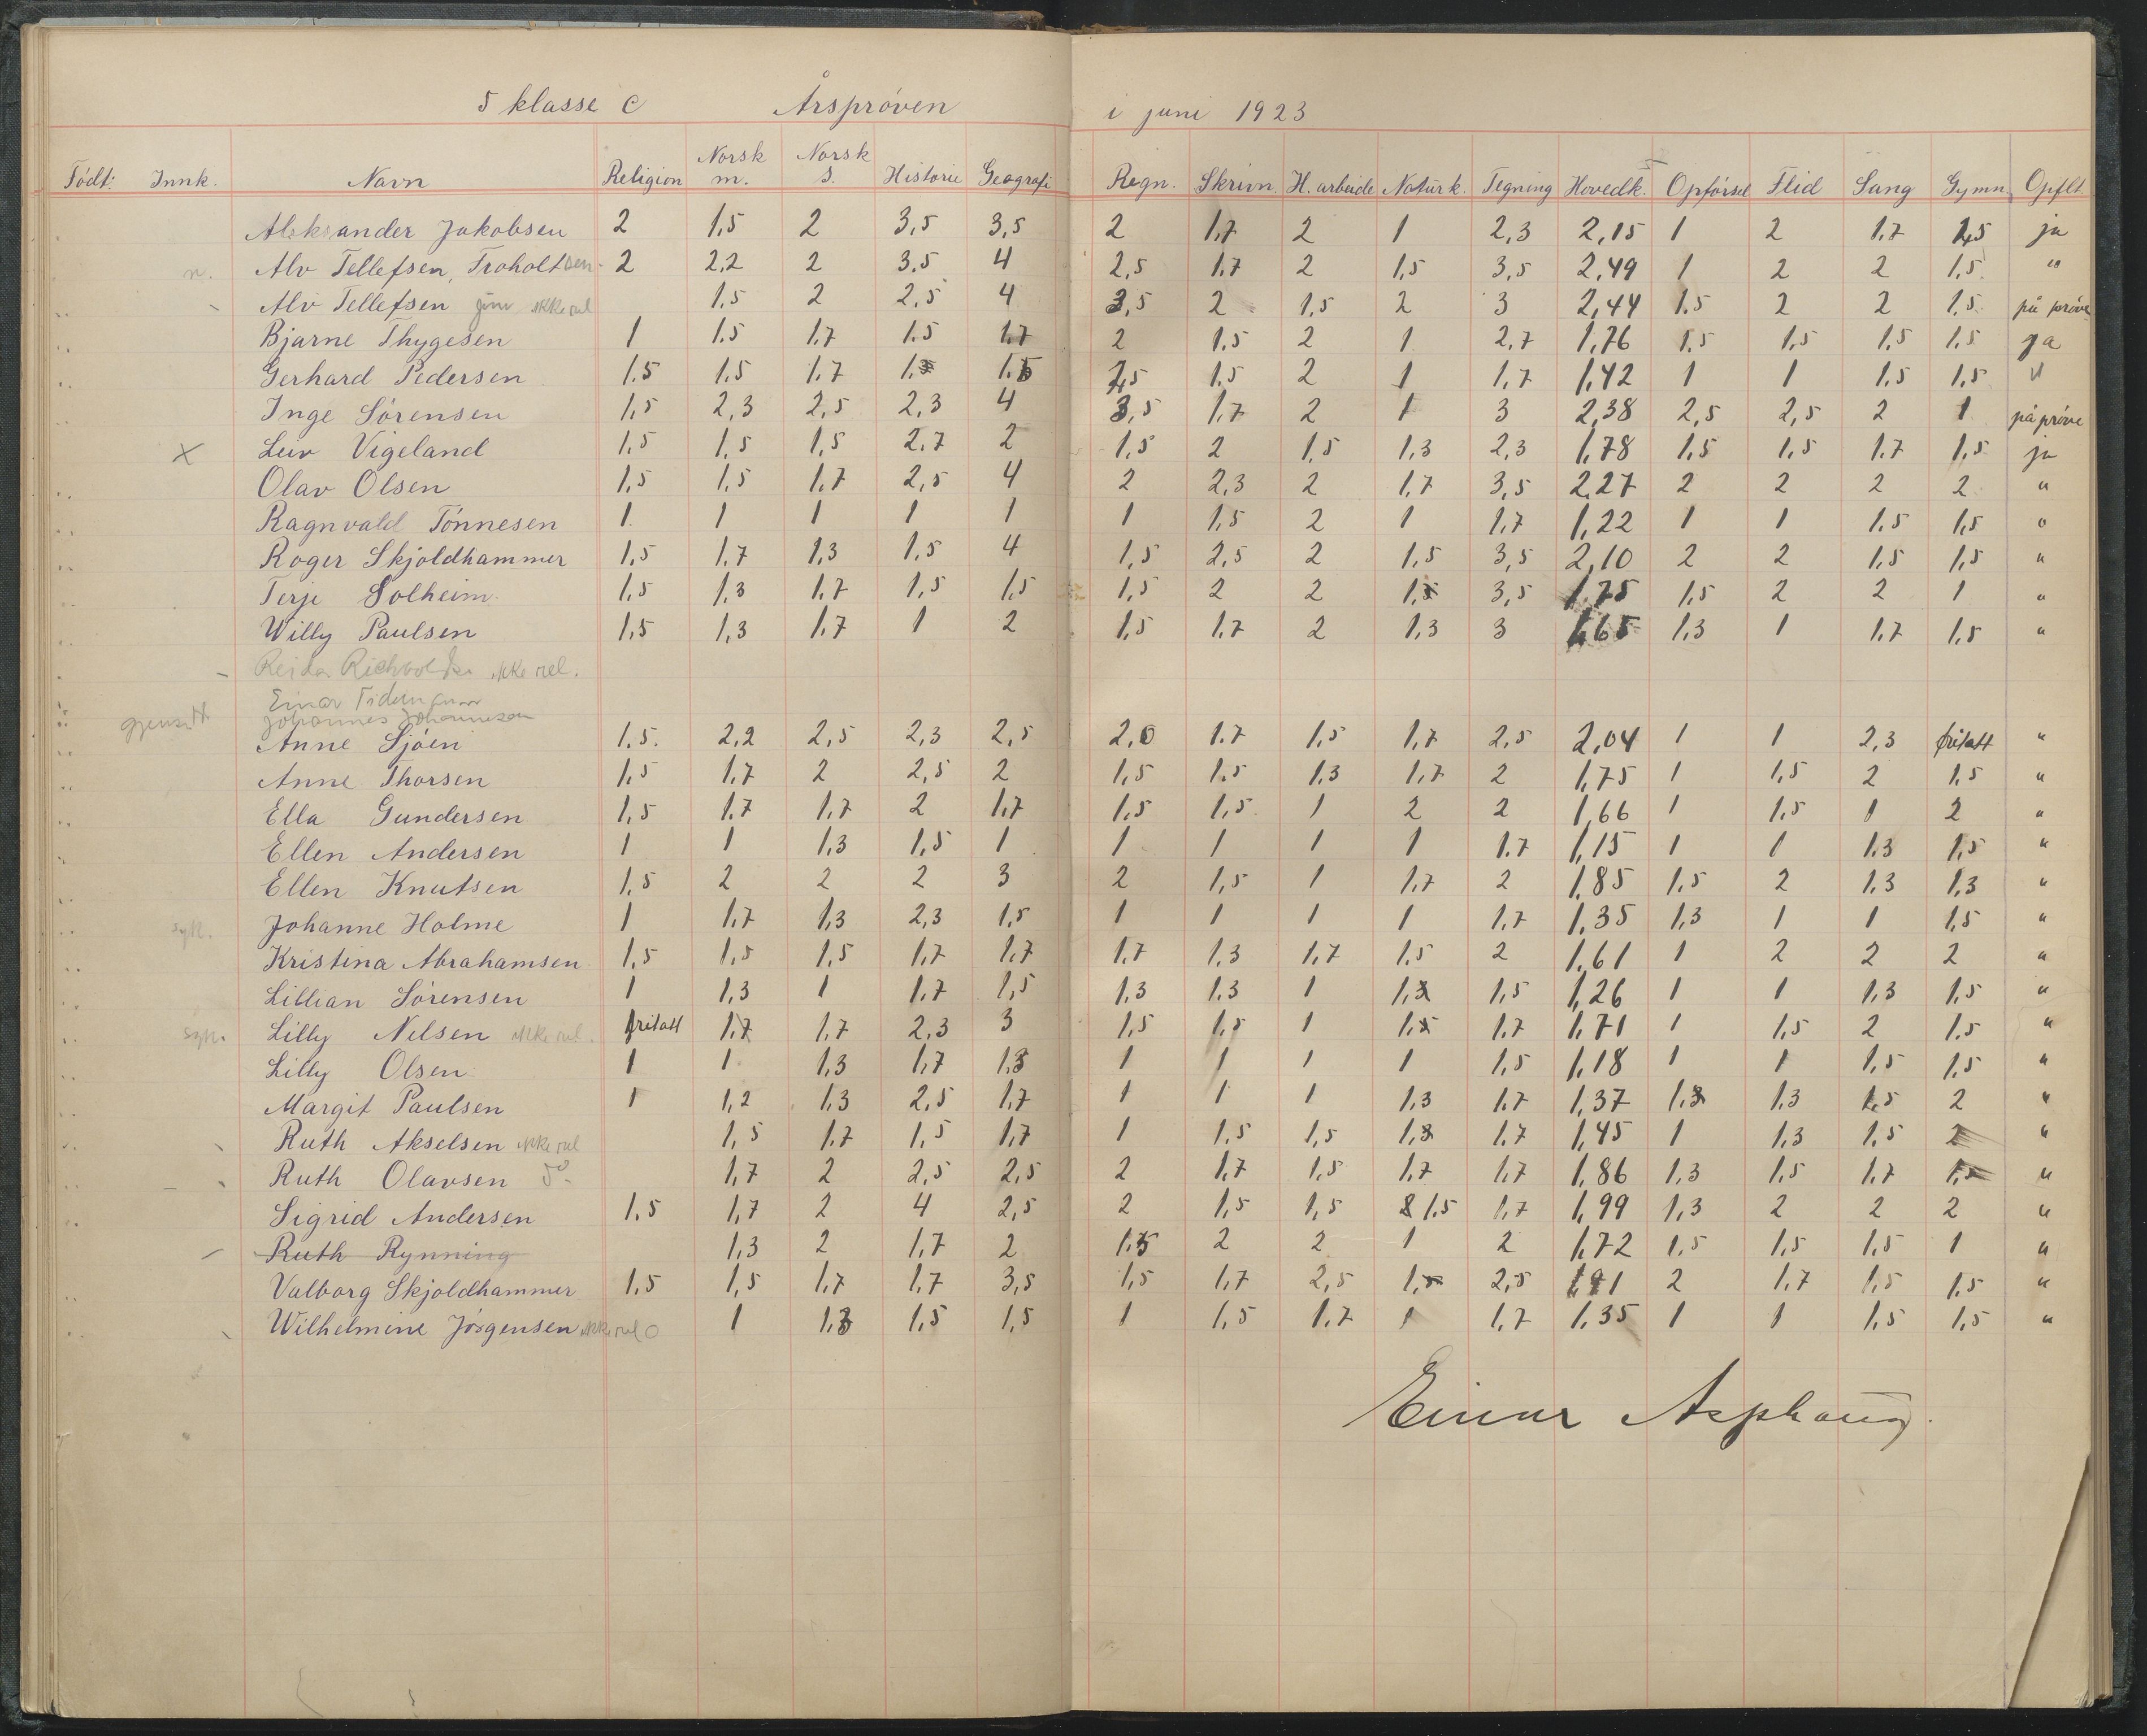 5 klasse C Årsprøven i juni 1923
Født: Innk. Navn Religion Norsk m. Norsk S. Historie Geografi Regn. Skrivn. H. arbeide Naturk. Tegning Hovedk. Opførsel Flid Sang Gymn. Opflt.
Aleksander Jakobsen 2 1,5 2 3,5 3,5 2 1,7 2 1 2,3 2,15 1 2 1,7 1,5 ja
n. Alv Tellefsen, Froholt 2 2,2 2 3,5 4 2,5 1,7 2 1,5 3,5 2,49 1 2 2 1,5 "
Alv Tellefsen ikke rel 1,5 2 2,5 4 3,5 2 1,5 2 3 2,44 1,5 2 2 1,5 på prøve
Bjarne Thygesen 1 1,5 1,7 1,5 1,7 2 1,5 2 1 2,7 1,76 1,5 1,5 1,5 1,5 ja
Gerhard Pedersen 1,5 1,5 1,7 1,5 2 1 1,7 1,42 1 1 1,5 1,5 "
Inge Sørensen 1,5 2,3 2,5 2,3 4 3,5 1,7 2 1 3 2,38 2,5 2,5 2 1 på prøve
x Leiv Vigeland 1,5 1,5 1,5 2,7 2 1,5 2 1,5 1,3 2,3 1,78 1,5 1,5 1,7 1,5 ja
Olav Olsen 1,5 1,5 1,7 2,5 4 2 2,3 2 1,7 3,5 2,27 2 2 2 2 "
Ragnvald Tønnesen 1 1 1 1 1 1 1,5 2 1 1,7 1,22 1 1 1,5 1,5 "
Roger Skjoldhammer 1,5 1,7 1,3 1,5 4 1,5 2,5 2 1,5 3,5 2,10 2 2 1,5 1,5 "
Terje Solheim 1,5 1,3 1,7 1,5 1,5 1,5 2 2 3,5 1,75 1,5 2 2 1 "
Willy Paulsen 1,5 1,3 1,7 1 2 1,5 1,7 2 1,3 3 1,65 1,3 1 1,7 1,5 "
ikke rel.
Einar
Johannes Johannesen
Anne Sjøen 1,5 2,2 2,5 2,3 2,5 2,0 1,7 1,5 1,7 2,5 2,04 1 1 2,3 fritatt "
Anne Thorsen 1,5 1,7 2 2,5 2 1,5 1,5 1,3 1,7 2 1,75 1 1,5 2 1,5 "
Ella Gundersen 1,5 1,7 1,7 2 1,7 1,5 1,5 1 2 2 1,66 1 1,5 1 2 "
Ellen Andersen 1 1 1,3 1,5 1 1 1 1 1 1,7 1,15 1 1 1,3 1,5 "
Ellen Knutsen 1,5 2 2 2 3 2 1,5 1 1,7 2 1,85 1,5 2 1,3 1,3 "
Johanne Holme 1 1,7 1,3 2,3 1,5 1 1 1 1 1,7 1,35 1,3 1 1 1,5 "
Kristina Abrahamsen 1,5 1,5 1,5 1,7 1,7 1,7 1,3 1,7 1,5 2 1,61 1 2 2 2 "
Lillian Sørensen 1 1,3 1 1,7 1,5 1,3 1,3 1 1,5 1,26 1 1 1,3 1,5 "
Lilly Nilsen ikke rel. fritatt 1,7 1,7 2,3 3 1,5 1,5 1 1,5 1,7 1,71 1 1,5 2 1,5 "
Lilly Olsen 1 1 1,3 1,7 1,3 1 1 1 1 1,5 1,18 1 1 1,5 1,5 "
Margit Paulsen 1 1,2 1,3 2,5 1,7 1 1 1 1,3 1,7 1,37 1,3 1,3 1,5 2 "
Ruth Akselsen ikke rel 1,5 1,7 1,5 1,7 1 1,5 1,5 1,3 1,7 1,45 1 1,3 1,5 2 "
Ruth Olavsen do 1,7 2 2,5 2,5 2 1,7 1,5 1,7 1,7 1,86 1,3 1,5 1,7 1,5 "
Sigrid Andersen 1,5 1,7 2 4 2,5 2 1,5 1,5 1,5 1,7 1,99 1,3 2 2 2 "
Ruth Rynning 1,3 2 1,7 2 1,5 2 2 1 2 1,72 1,5 1,5 1,5 1 "
Valborg Skjoldhammer 1,5 1,5 1,7 1,7 3,5 1,5 1,7 2,5 1,5 2,5 1,91 2 1,7 1,5 1,5 "
Wilhelmine Jørgensen ikke rel 1 1,3 1,5 1,5 1 1,5 1,7 1 1,7 1,35 1 1 1,5 1,5 "
Einar Asphaug